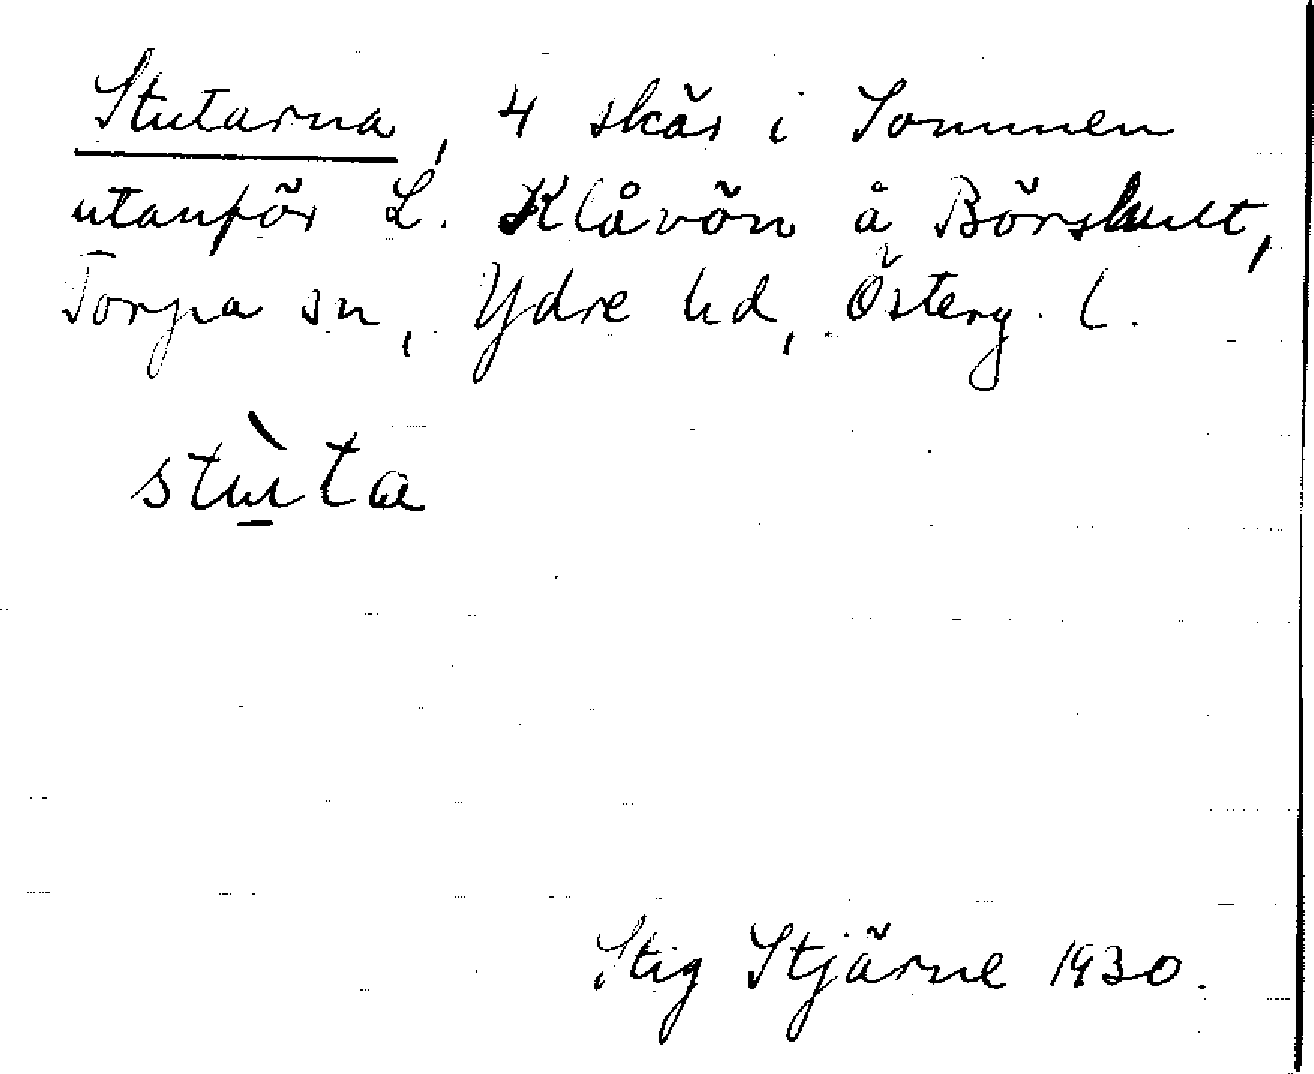 Stutarna, 4 skär i Sommen
utanför L. Klåvön å Börskult,
Torpa sn, Ydre hd, Österg. l.
stùta
Stig Stjärne 1930.